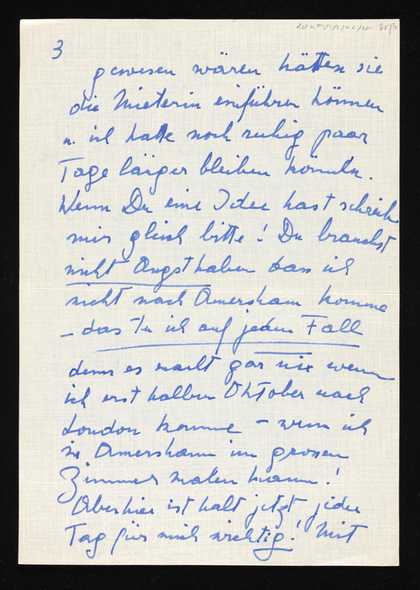 3
gewesen wären hätten sie
die Mieterin einführen können
u. ich hatte noch ruhig paar
Tage länger bleiben können.
Wenn Du eine Idee hast schreibe
mir gleich bitte! Du brauchst
nicht Angst haben dass ich
nicht nach Amersham komme
– das tu ich auf jeden Fall
denn es macht gar nix wenn
ich erst halben Oktober nach
London komme – wenn ich
in Amersham im grossen
Zimmer malen kann!
Aber hier ist halt jetzt jeder
Tag für mich wichtig! Mit